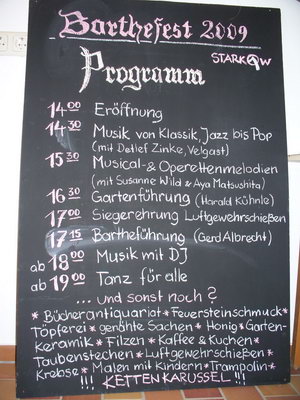 Barthefest 2009
Programm
STARKOW
14 00 Eröffnung
14 30 Musik von Klassik, Jazz bis Pop
(mit Detlef Zinke, Velgast)
15 30 Musical- & Operettenmelodien
(mit Susanne Wild & Aya Matsushita)
16 30 Gartenführung (Harald Kühnle)
17 00 Siegerehrung Luftgewehrschießen
17 15 Bartheführung (Gerd Albrecht)
ab 18 00 Musik mit DJ
ab 19 00 Tanz für alle
... und sonst noch?
* Bücherantiquariat * Feuersteinschmuck *
Töpferei * genähte Sachen * Honig * Garten-
keramik * Filzen * Kaffee & Kuchen *
Taubenstechen * Luftgewehrschießen *
Krebse * Malen mit Kindern * Trampolin *
!!! KETTENKARUSSEL !!!